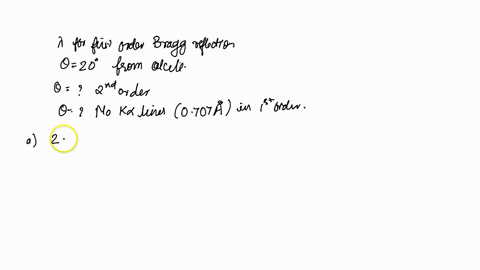 λ for first order Bragg reflection
θ = 20° from calcite.
θ = ? 2nd order
θ = ? Mo Kα lines (0.707 Å) in 1st order.
a) 2.